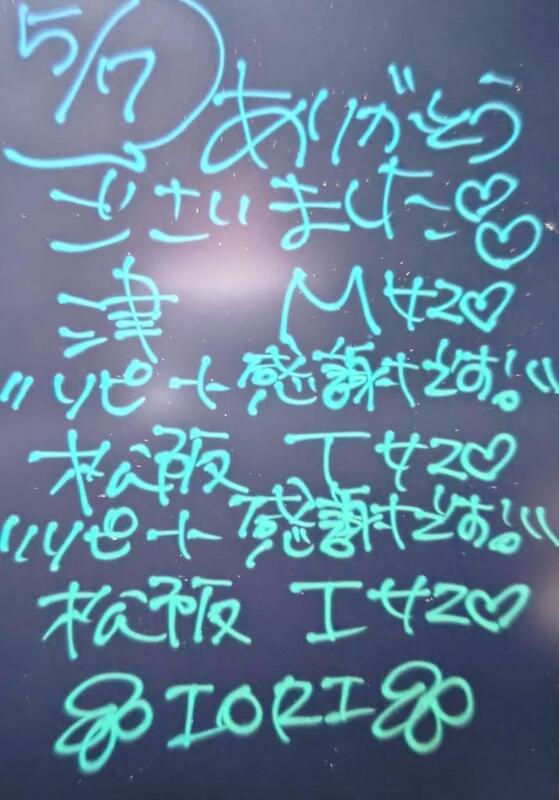 5/7
ありがとう
ございました♡♡
津 Mサン♡
〃リピート感謝です!!〃
松阪 Tサン♡
〃リピート感謝です!!〃
松阪 Iサン♡
IORI